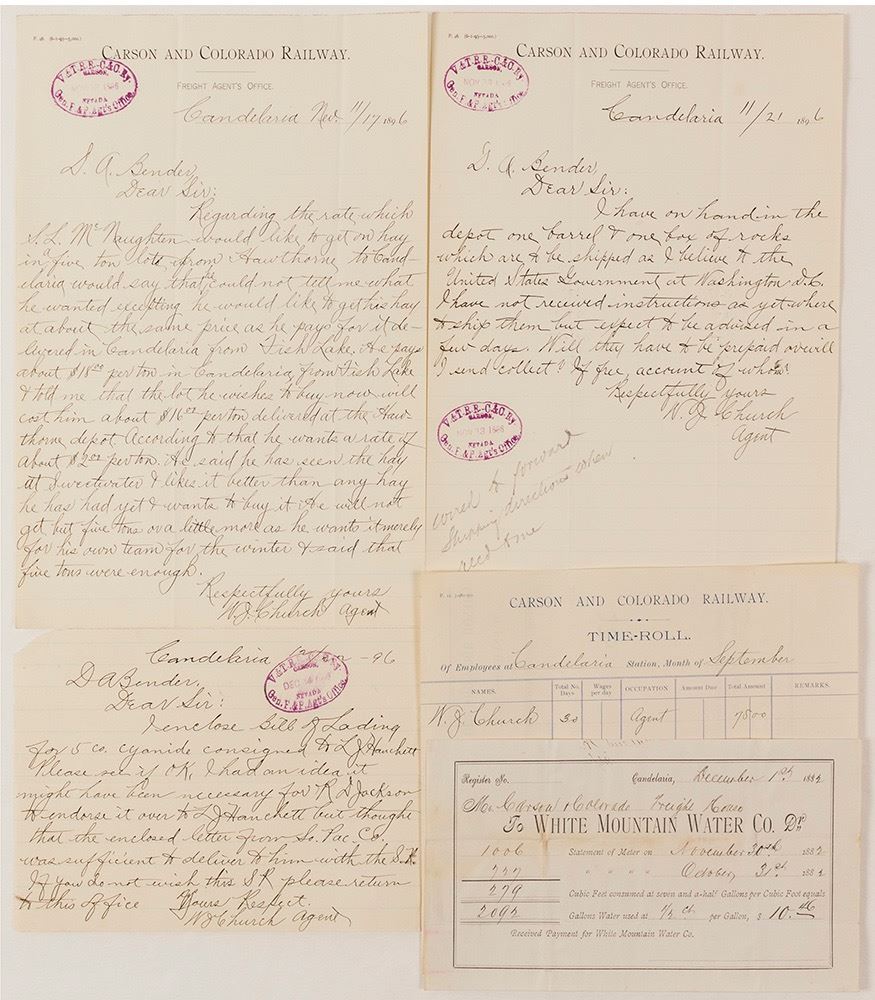 CARSON AND COLORADO RAILWAY.
V. & T. R.R. - C. & C. Ry.
CARSON,
NEVADA
Gen. F. & P. Agt's Office
FREIGHT AGENT'S OFFICE.
Candelaria Nev. 11/17 1896
D. A. Bender,
Dear Sir:
Regarding the rate which
S. L. McNaughton would like to get on hay
in five ton lots from Hawthorne to Cand-
elaria would say that he could not tell me what
he wanted excepting he would like to get his hay
at about the same price as he pays for it de-
livered in Candelaria from Fish Lake. He pays
about $18.00 per ton in Candelaria from Fish Lake
& told me that the lot he wishes to buy now will
cost him about $16.00 per ton delivered at the Haw-
thorne depot According to that he wants a rate of
about $2.00 per ton. He said he has seen the hay
at Sweetwater & likes it better than any hay
he has had yet & wants to buy it He will not
get but five tons or a little more as he wants it merely
for his own team for the winter & said that
five tons were enough.
Respectfully yours
W. J. Church Agent
CARSON AND COLORADO RAILWAY.
V. & T. R.R. - C. & C. Ry.
CARSON,
NEVADA
Gen. F. & P. Agt's Office
FREIGHT AGENT'S OFFICE.
Candelaria 11/21 1896
D. A. Bender,
Dear Sir:
I have on hand in the
depot one barrel & one box of rocks
which are to be shipped as I believe to the
United States Government at Washington D.C.
I have not received instructions as yet where
to ship them but expect to be advised in a
few days. Will they have to be prepaid or will
I send collect? If free, account of whom.
Respectfully yours
W. J. Church
Agent
V. & T. R.R. - C. & C. Ry.
CARSON,
NEVADA
Gen. F. & P. Agt's Office
wired to forward
Shipping directions when
recd to me
Candelaria -96
V. & T. R.R. - C. & C. Ry.
CARSON,
DEC
NEVADA
Gen. F. & P. Agt's Office
D A Bender,
Dear Sir:
I enclose Bill of Lading
for 5 cs. cyanide consigned to L J Hanchett
Please see if OK, I had an idea it
might have been necessary for R D Jackson
to endorse it over to L J Hanchett but thought
that the enclosed letter from So. Pac. Co.
was sufficient to deliver to him with the
If you do not wish this SR please return
to this office Yours Respect.
W J Church Agent
CARSON AND COLORADO RAILWAY.
TIME-ROLL.
Of Employees at Candelaria Station, Month of September
NAMES. Total No. Days Wages per day OCCUPATION Amount Due Total Amount REMARKS.
W. J. Church 30 Agent 78 00
Register No. Candelaria, December 1st 1882
Mr. Carson & Colorado Freight House
To WHITE MOUNTAIN WATER CO. Dr.
1006 Statement of Meter on November 30th 1882
727 " " " " October 31st 1882
279 Cubic Feet consumed at seven and a-half Gallons per Cubic Foot equals
2092 Gallons Water used at 1/2 ct per Gallon, $ 10.46
Received Payment for White Mountain Water Co.